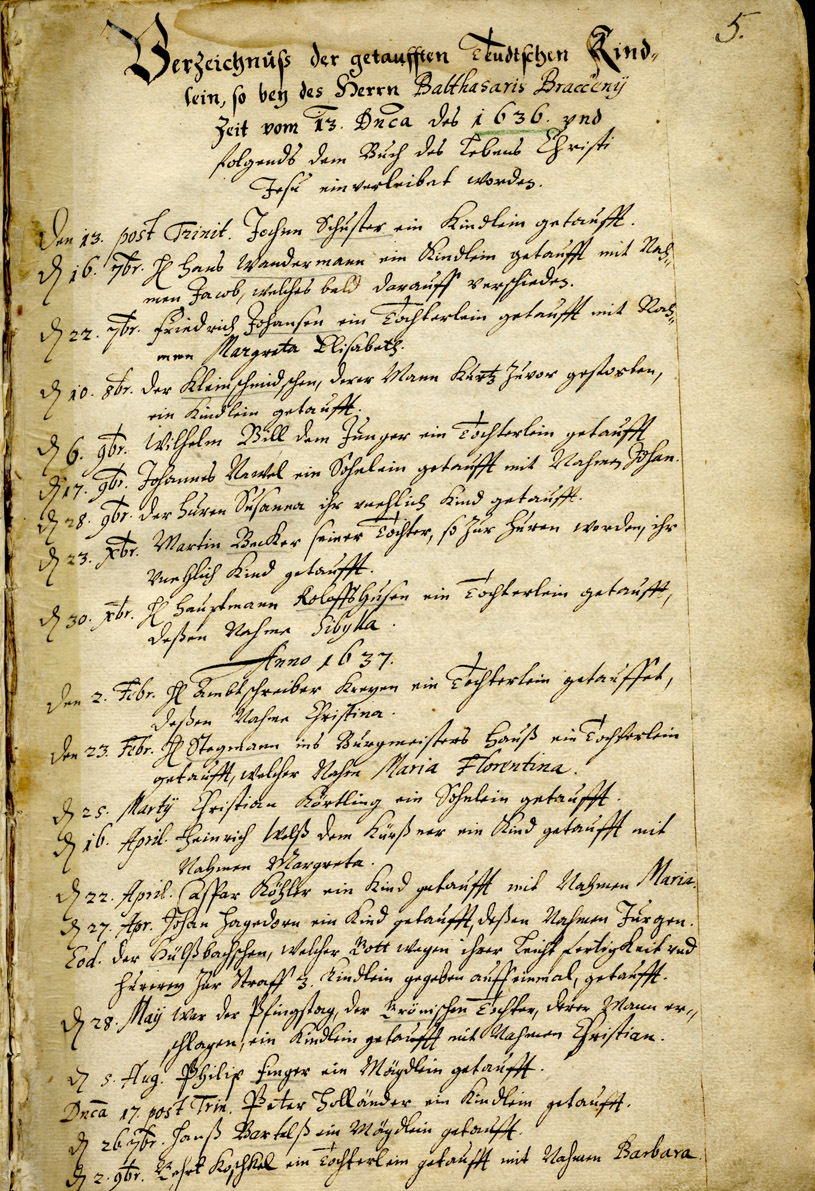 5.
Verzeichnüß der getaufften Teudtschen Kind-
lein, so bey des Herrn Balthasaris Bracceny
Zeit vom 13. Dnca des 1636. vnd
folgends dem Buch des Lebens Christi
Jesu einverleibet worden.
Den 13. post Trinit. Jochim Schuster ein Kindlein getaufft.
D 16. 7br. H Hans Wandermann ein Kindlein getaufft mit Nah-
men Jacob, welches bald darauff verschieden.
D 22. 7br. Friedrich Johansen ein Töchterlein getaufft mit Nah-
men Margreta Elisabeth.
D 10. 8br. der Kleinschmidschen, derer Mann kurtz zuvor gestorben,
ein Kindlein getaufft.
D 6. 9br. Wilhelm Bill dem Jünger ein Töchterlein getaufft
D 17. 9br. Johannes Nawel ein Söhnlein getaufft mit Nahmen Johan.
D 28. 9br. der Huren Susanna ihr vnehlich Kind getaufft.
D 23. xbr. Martin Becker seiner Tochter, so zur Huren worden, ihr
vnehlich Kind getaufft.
D 30. xbr. H Hauptmann Roloffshusen ein Töchterlein getaufft,
deßen Nahme Sibylla.
Anno 1637.
Den 2. Febr. H Ambtschreiber Kreyen ein Töchterlein getauffet,
deßen Nahme Christina.
Den 23. Febr. H Stegmann ins Burgmeisters Hauß ein Töchterlein
getaufft, welcher Nahm Maria Florentina.
D 25. Martij Christian Körtling ein Söhnlein getaufft.
D 16. April. Heinrich Welß dem Kürßner ein Kind getaufft mit
Nahmen Margreta.
D 22. April. Caspar Köhler ein Kind getaufft mit Nahmen Maria.
D 27. Apr. Johan Hagedorn ein Kind getaufft, deßen Nahmen Jürgen.
Eod. der Hulßbachschen, welcher Gott wegen ihrer Leichtfertigkeit vnd
Hurerey zur Straff 3. Kindlein gegeben auff einmal, getaufft.
D 28. May war der Pfingstag, der Krönischen Tochter, derer Mann er-
schlagen, ein Kindlein getaufft mit Nahmen Christian.
D 5. Aug. Philip Finger ein Mägdlein getaufft.
Dnca 17. post Trin. Peter Holländer ein Kindlein getaufft.
D 26 7br. Hanß Bartelß ein Mägdlein getaufft.
D 2. 9br. Koschkel ein Töchterlein getaufft mit Nahmen Barbara